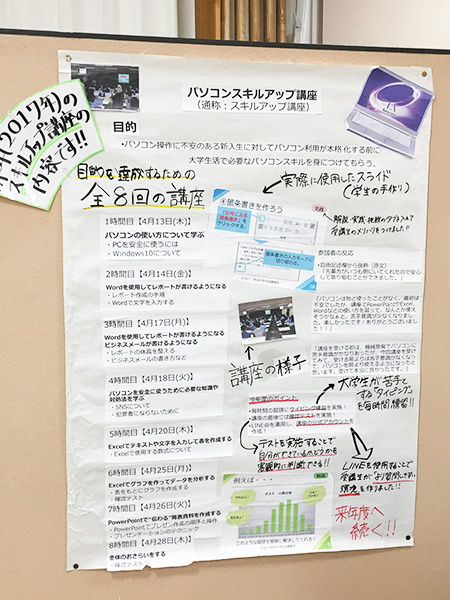 (2017年)の
スキルアップ講座の
内容です!!
パソコンスキルアップ講座
(通称:スキルアップ講座)
目的
・パソコン操作に不安のある新入生に対してパソコン利用が本格化する前に
大学生活で必要なパソコンスキルを身につけてもらう。
目的を達成するための
全8回の講座
1時間目【4月13日(木)】
パソコンの使い方について学ぶ
・PCを安全に使うには
・Windows10について
2時間目【4月14日(金)】
Wordを使用してレポートが書けるようになる
・レポート作成の手順
・Wordで文字を入力する
3時間目【4月17日(月)】
Wordを使用してレポートが書けるようになる
ビジネスメールが書けるようになる
・レポートの体裁を整える
・ビジネスメールの書き方など
4時間目【4月18日(火)】
パソコンを安全に使うために必要な知識や
対処法を学ぶ
・SNSについて
・犯罪者にならないために
5時間目【4月20日(木)】
Excelでテキストや文字を入力して表を作成する
・Excelで使用する数式について
6時間目【4月25日(月)】
Excelでグラフを作ってデータを分析する
・表をもとにグラフを作成する
・確認テスト
7時間目【4月26日(火)】
PowerPointで"伝わる"発表資料を作成する
・PowerPointでプレゼン作成の順序と操作
・プレゼンテーションのテクニック
8時間目【4月28日(木)】
全体のおさらいをする
・確認テスト
実際に使用したスライド
(学生の手作り)
④箇条書きを作ろう
実践
クリックする
箇条書きの入力モードに
切り替わる
受講生のメリハリをつけました!!
参加者の反応
・自由記述欄から抜粋(原文)
「先輩方がいつも側にいてくれたので安心し
て取り組むことができました。」
講座の様子
今年度のポイント
・毎時間の冒頭にタイピング練習を実施!
・講座の最後には確認テストを実施!
・LINE@を運用し、講座の公式アカウントを
作成!
大学生が苦手と
する"タイピング"
を毎時間練習!!
テストを実施することで
自分ができているかどうかを
客観的に判断できる!!
LINEを使用することで
環境を作りました!!
来年度へ
続く!!
例えば・・・
解説
テスト 人数分布
このような疑問を簡単に解決してくれる!